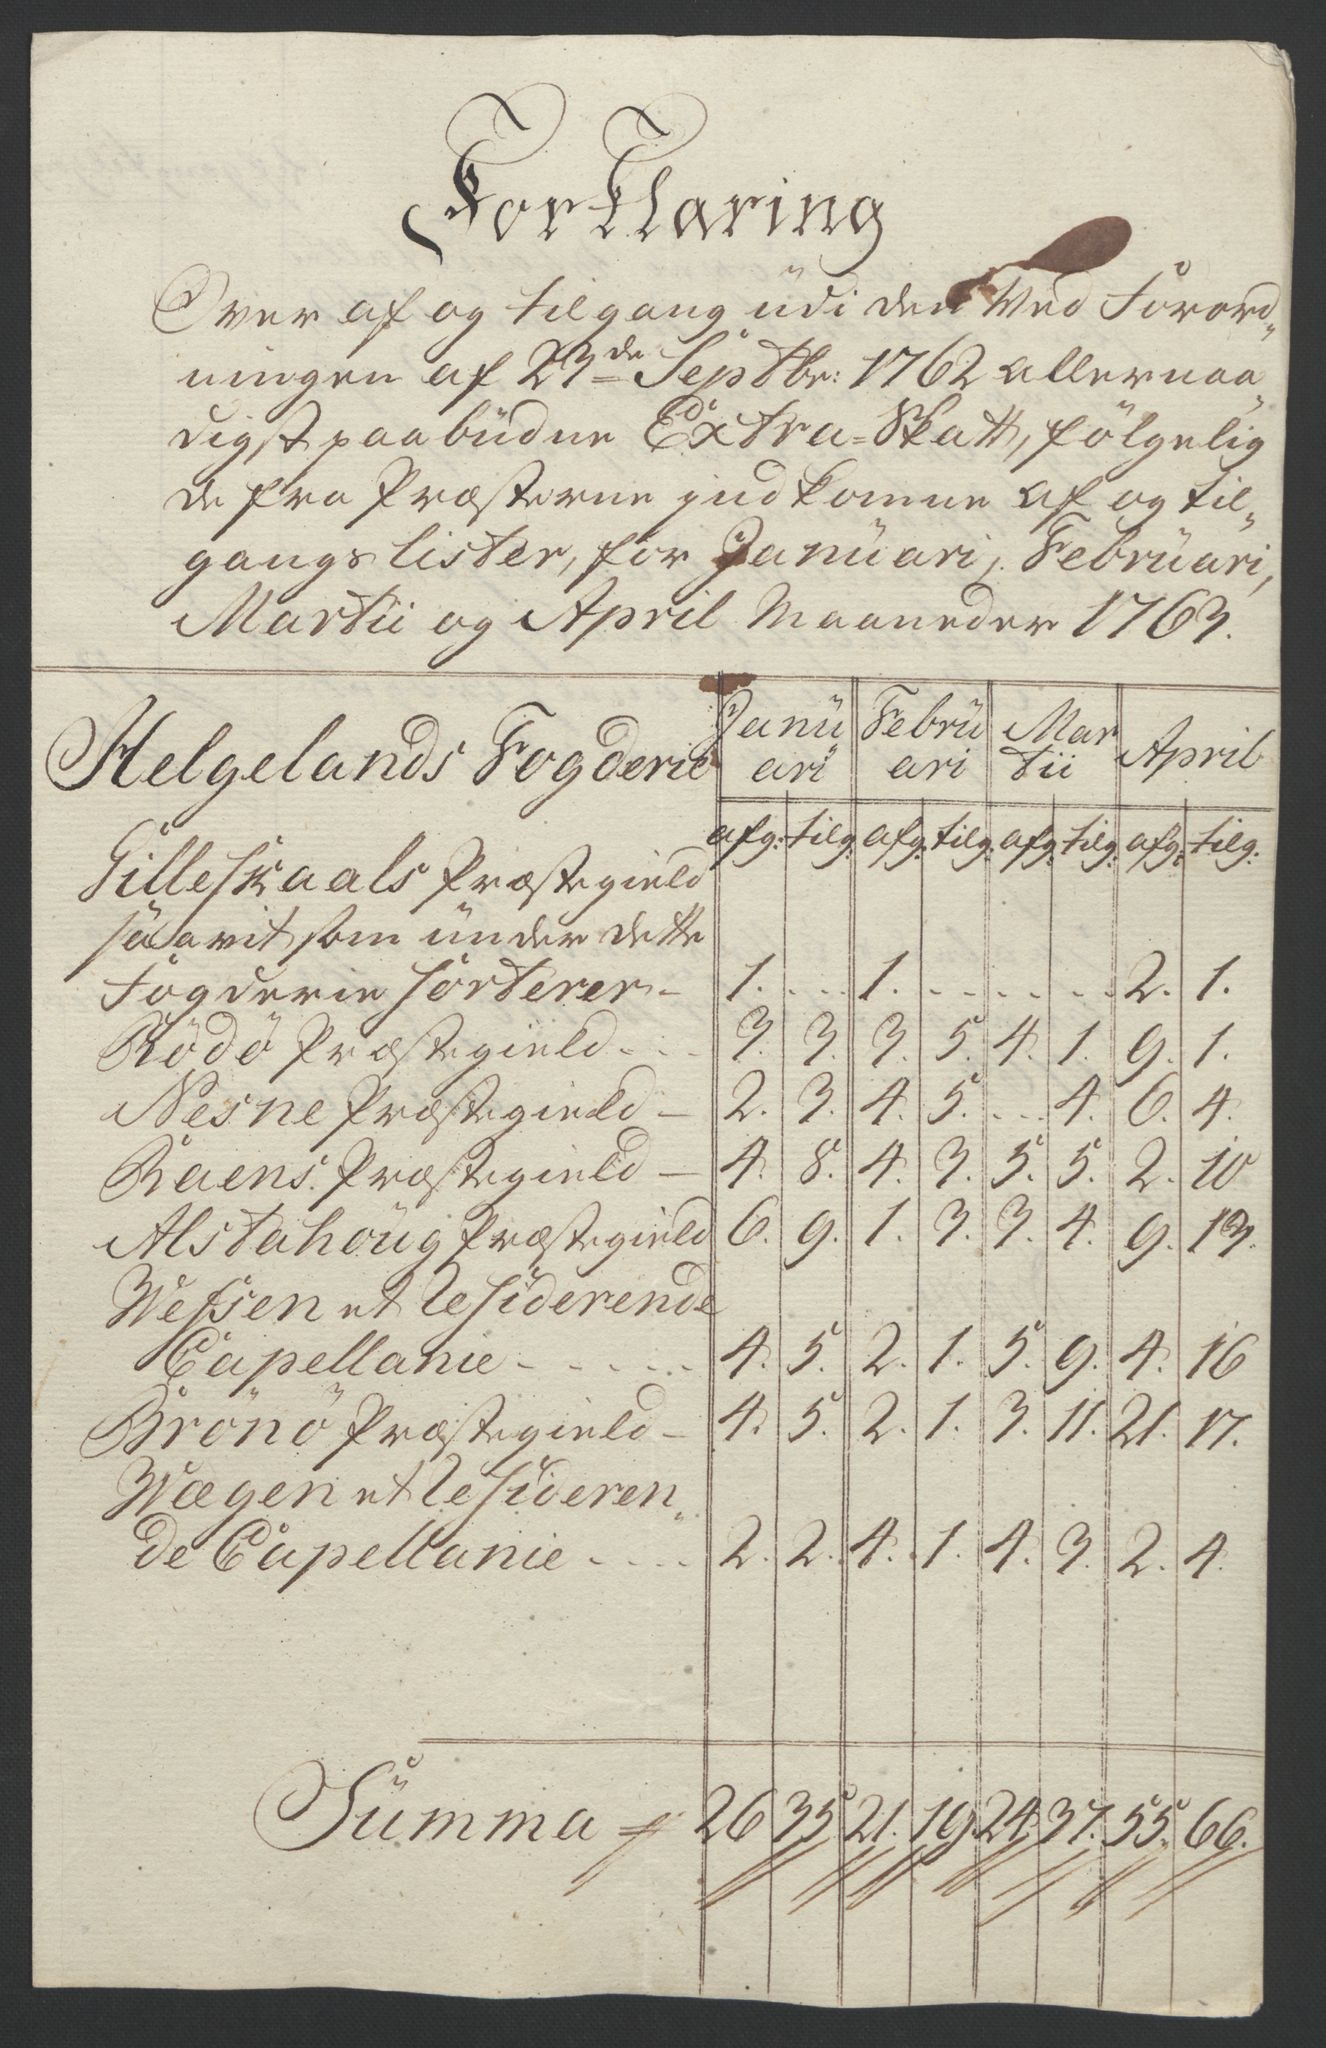 ForKlaring
Over af og tilgang üdi den Ved Forord„
ningen af 23de Septbr: 1762 allernaa„
digst paabüdne Extra=Skatt, fölgelig
de fra Præsterne jndkomne af og til„
gangs lister, for Janüari, Febrüari,
Martii og April Maaneder 1763.
Helgelands Fogderie Janü Febrü Mar April
ari ari tii
afg: tilg: afg: tilg: afg: tilg: afg: tilg:
Gilleskaals Præstegield
saavit som ünder dette
Fogderie sorterer - 1. ... 1. ... ... ... 2. 1.
Rödö Præstegield - - - 3. 3. 3. 5. 4. 1. 9. 1.
Nesne Præstegield - 2. 3. 4. 5. ... 4. 6. 4.
Raens Præstegield - 4. 8. 4. 3. 5. 5. 2. 10
Alstahoüg Præstegield 6. 9. 1. 3. 3. 4. 9. 13.
Wefsen et Residerende
Capellanie - - - - - 4. 5. 2. 1. 5. 9. 4. 16
Brönö Præstegield - 4. 5. 2. 1. 3. 11. 21. 17.
Wægen et Resideren„
de Capellanie - - - - 2. 2. 4. 1. 4. 3. 2. 4.
Sümma 26 35 21. 19 24 37. 55. 66.